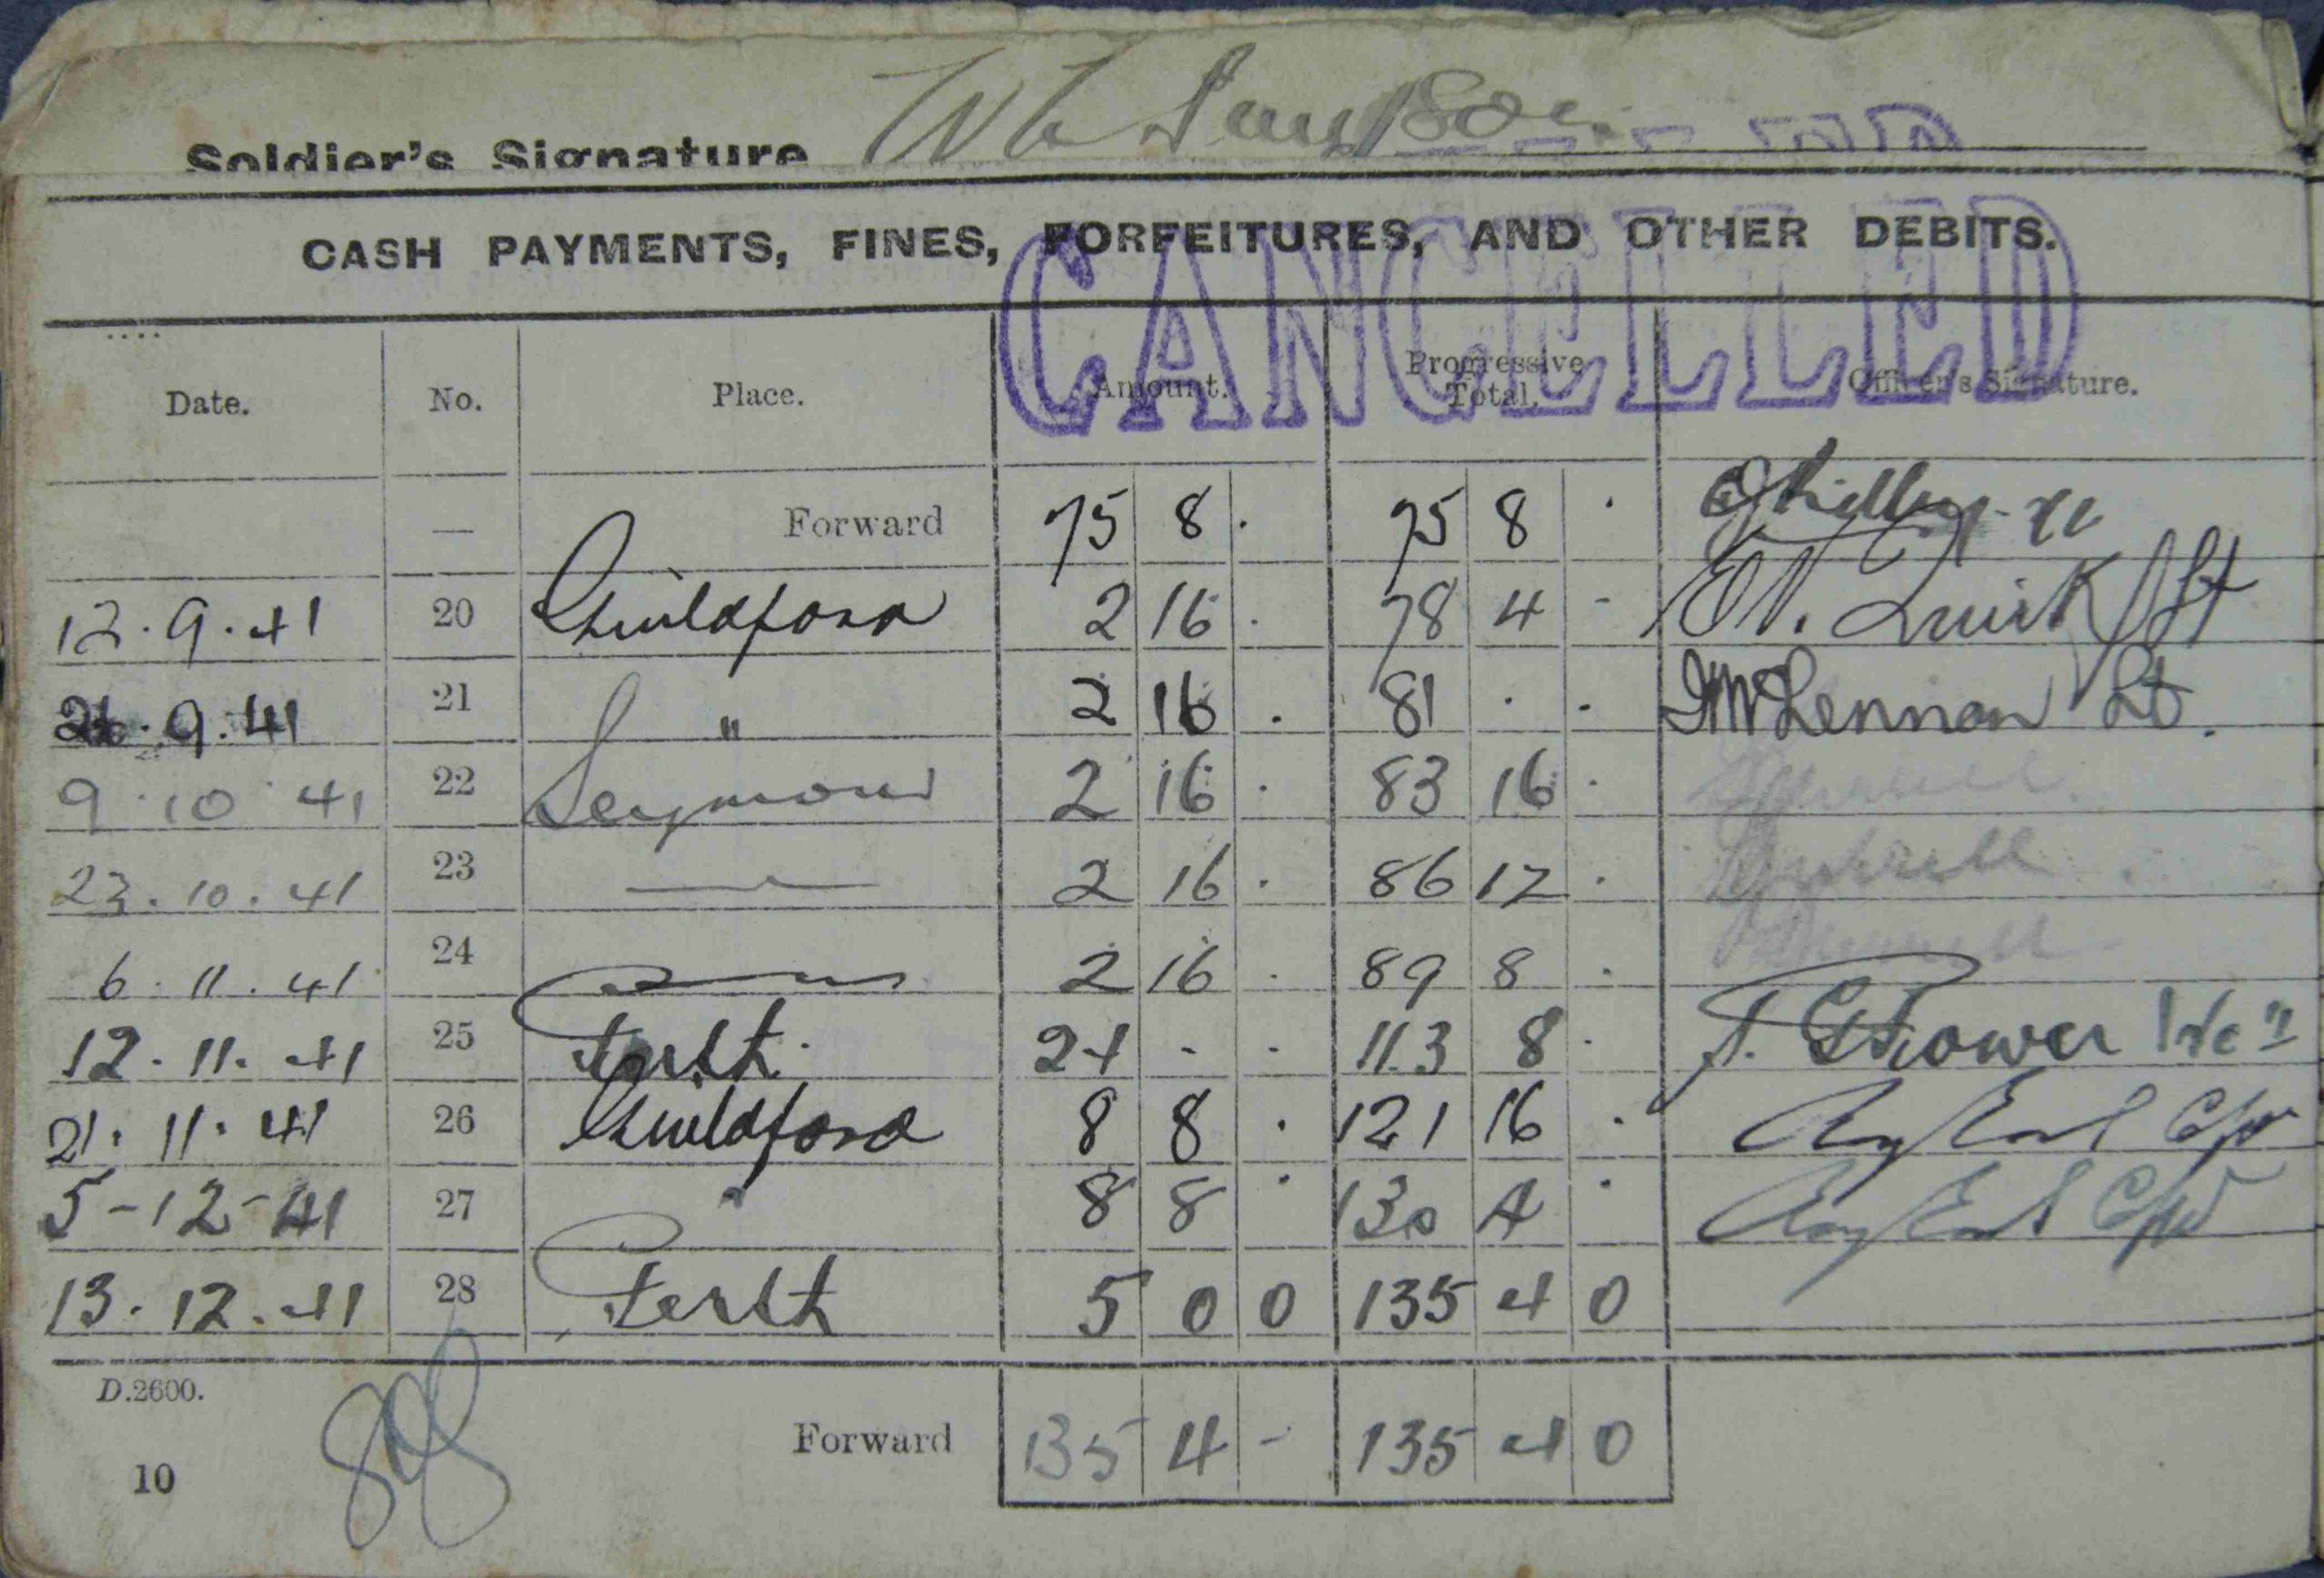 Soldier's Signature
CASH PAYMENTS, FINES, FORFEITURES, AND OTHER DEBITS.
CANCELLED
Date. No. Place. Amount. Progressive Total. Officer's Signature.
— Forward 75 8 . 75 8 .
12.9.41 20 Guildford 2 16 . 78 4 - Quirk Lt
9.41 21 " 2 16 . 81 . . McLennan Lt.
9.10.41 22 Seymour 2 16 . 83 16 .
23.10.41 23 — 2 16 . 86 12 .
6.11.41 24 2 16 . 89 8 .
12.11.41 25 Perth. 24 - - 113 8 .
21.11.41 26 Guildford 8 8 . 121 16 . Capt
5-12-41 27 " 8 8 . 130 4 . Capt
13.12.41 28 Perth 5 0 0 135 4 0
D.2600.
Forward 135 4 - 135 4 0
10